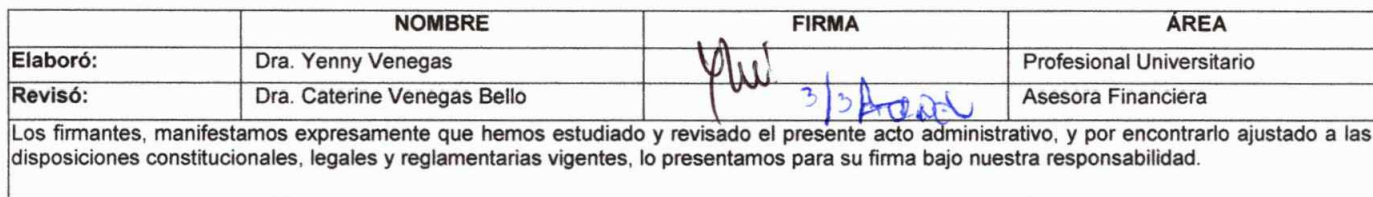 NOMBRE FIRMA ÁREA
Elaboró: Dra. Yenny Venegas Profesional Universitario
Revisó: Dra. Caterine Venegas Bello 3/3 Asesora Financiera
Los firmantes, manifestamos expresamente que hemos estudiado y revisado el presente acto administrativo, y por encontrarlo ajustado a las
disposiciones constitucionales, legales y reglamentarias vigentes, lo presentamos para su firma bajo nuestra responsabilidad.